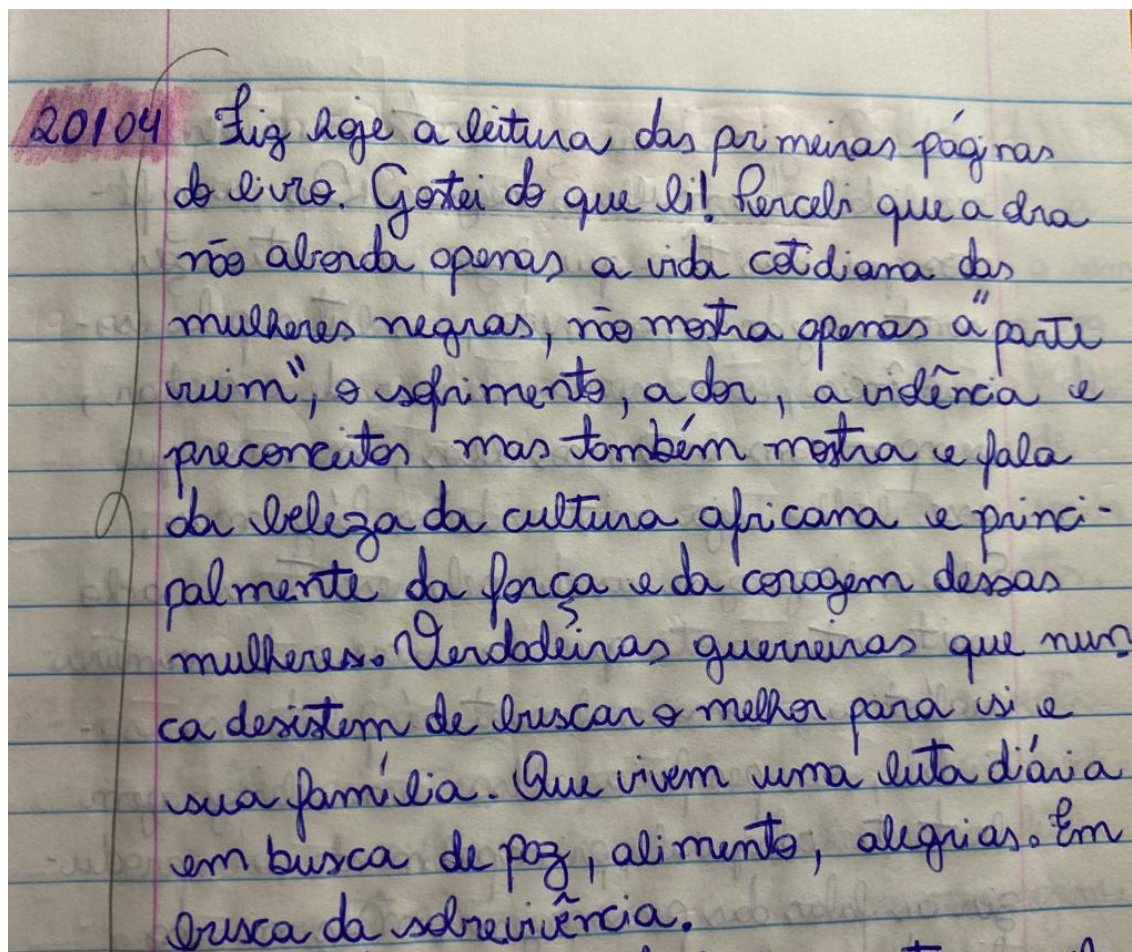 20/04 Fiz hoje a leitura das primeiras páginas
do livro. Gostei do que li! Percebi que a obra
não aborda apenas a vida cotidiana das
mulheres negras, não mostra apenas a "parte
ruim", o sofrimento, a dor, a violência e
preconceitos mas também mostra e fala
da beleza da cultura africana e princi-
palmente da força e da coragem dessas
mulheres. Verdadeiras guerreiras que nun
ca desistem de buscar o melhor para si e
sua família. Que vivem uma luta diária
em busca de paz, alimento, alegrias. Em
busca da sobrevivência.